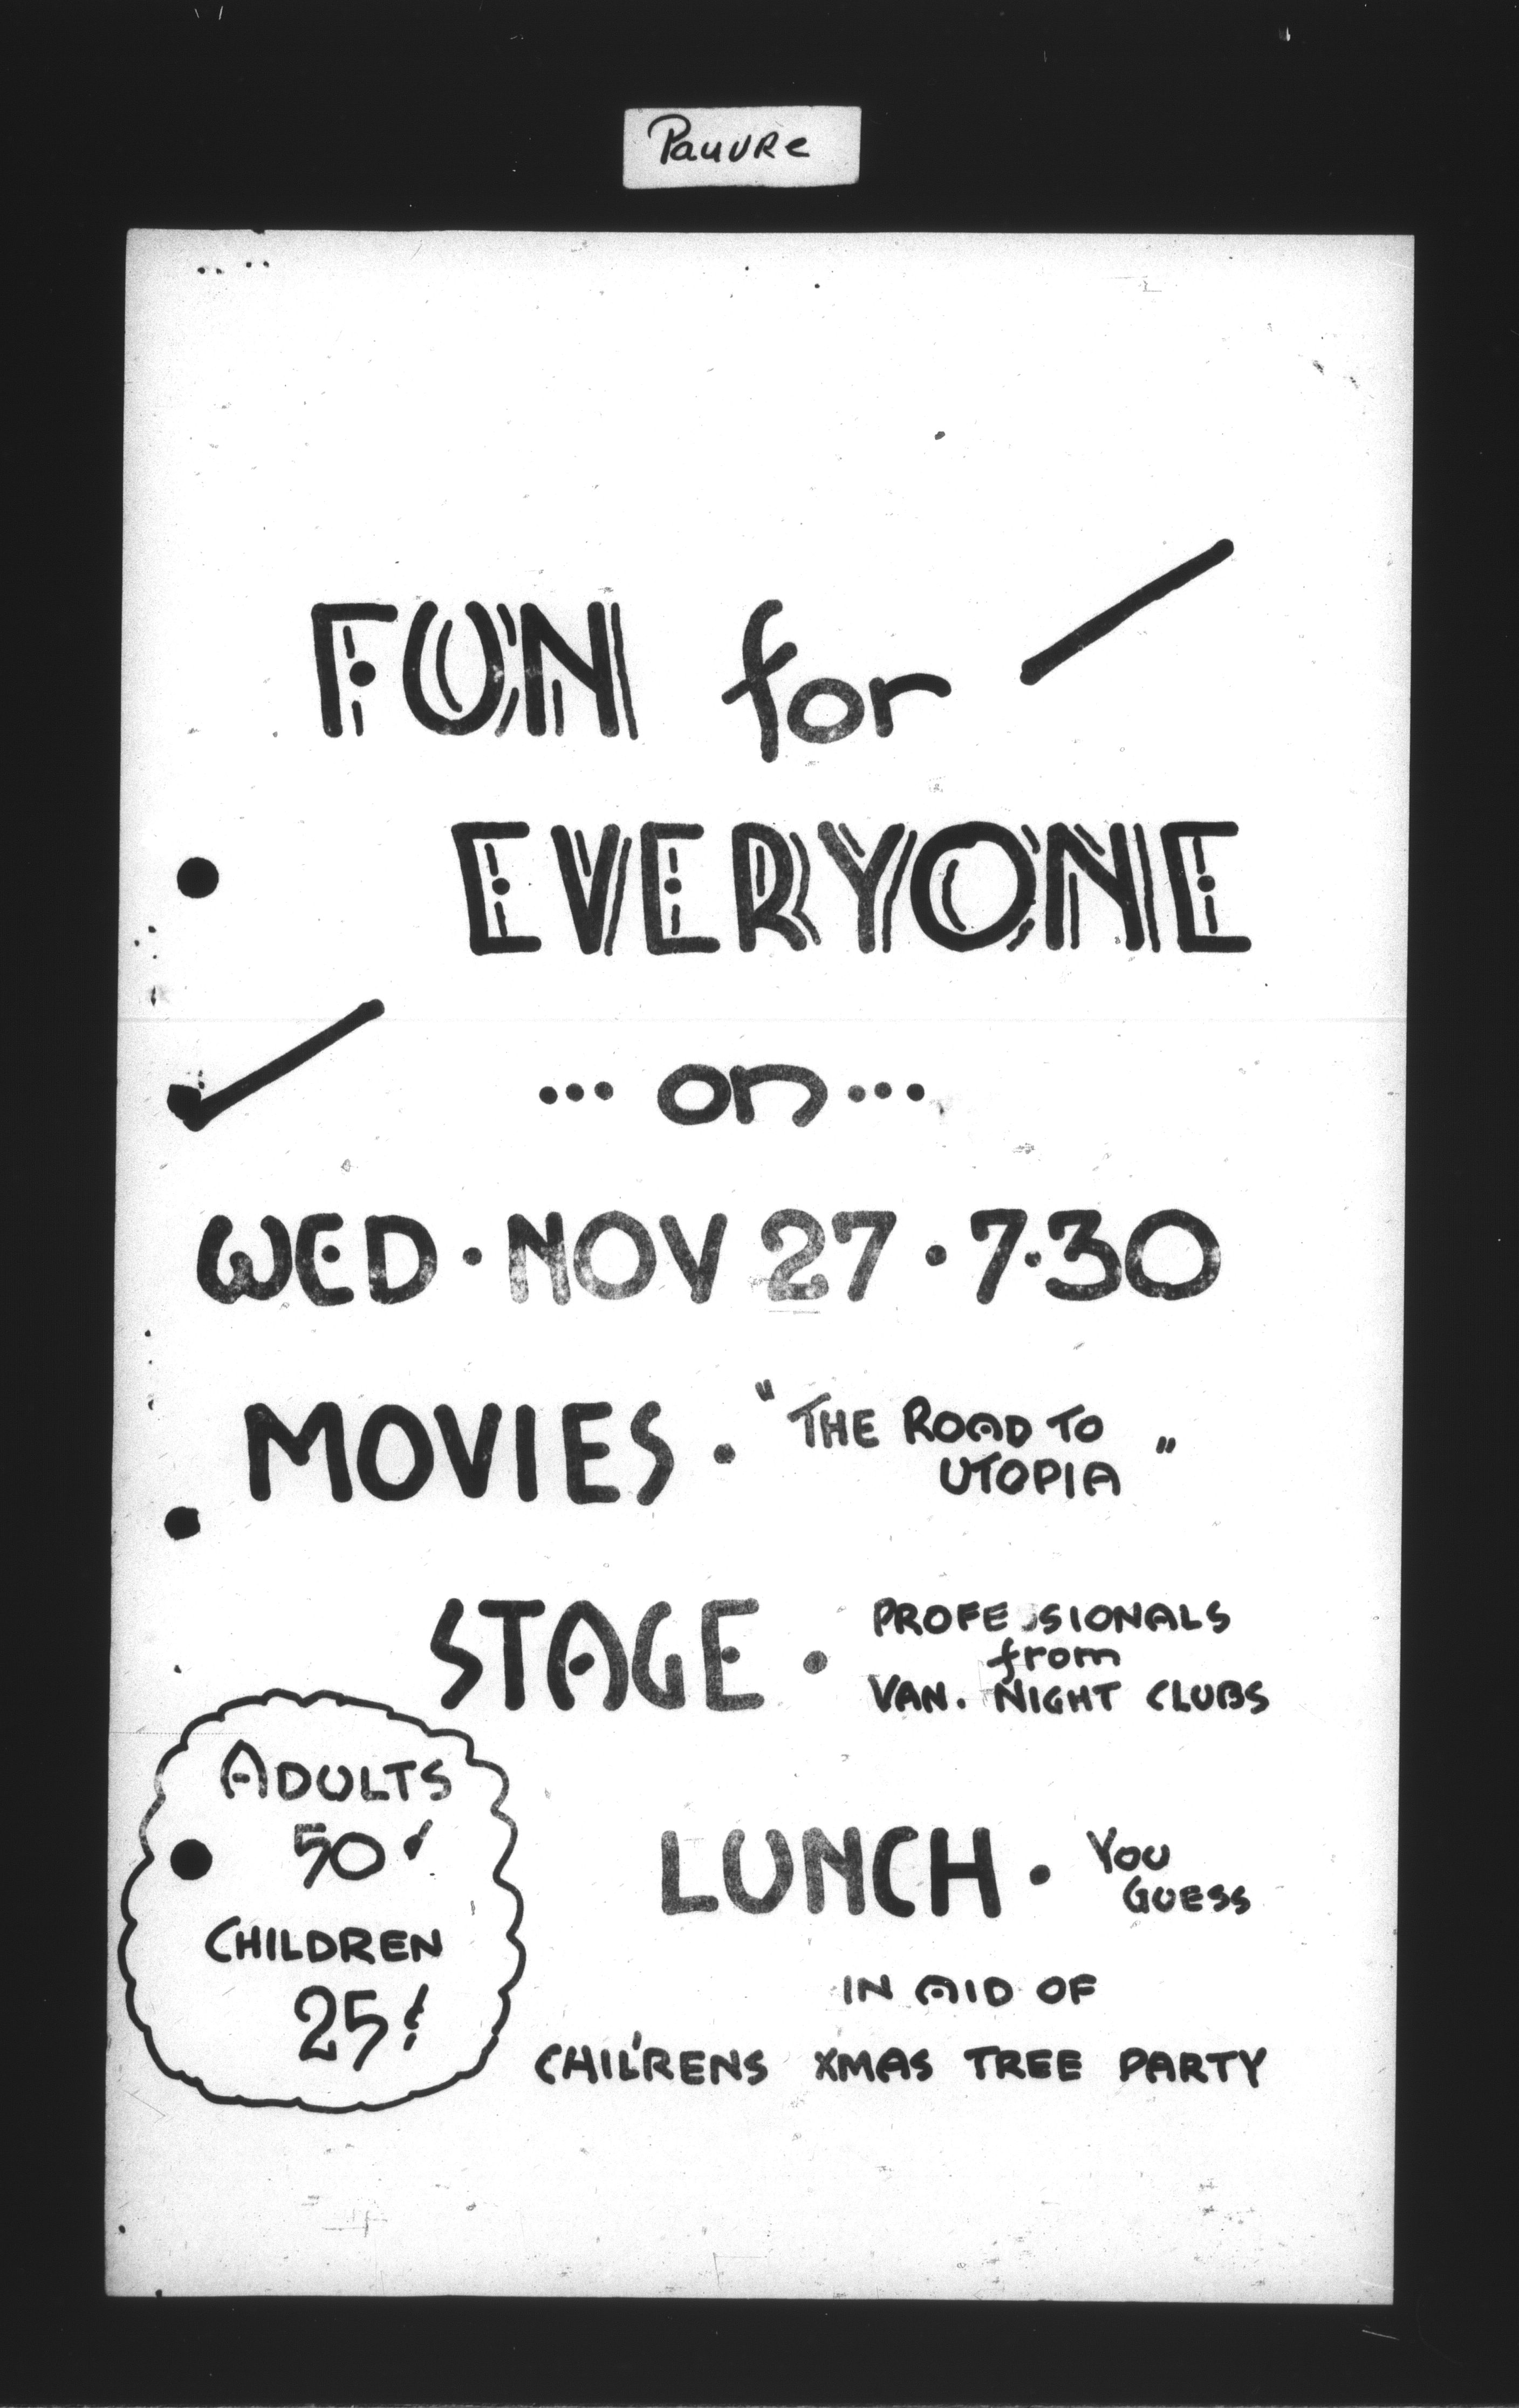 Pauvre
FUN for
EVERYONE
... on ...
WED · NOV 27 · 7·30
MOVIES · "THE ROAD TO
UTOPIA"
STAGE · PROFESSIONALS
from
VAN. NIGHT CLUBS
ADULTS
50¢
CHILDREN
25¢
LUNCH · YOU
GUESS
IN AID OF
CHIL'RENS XMAS TREE PARTY